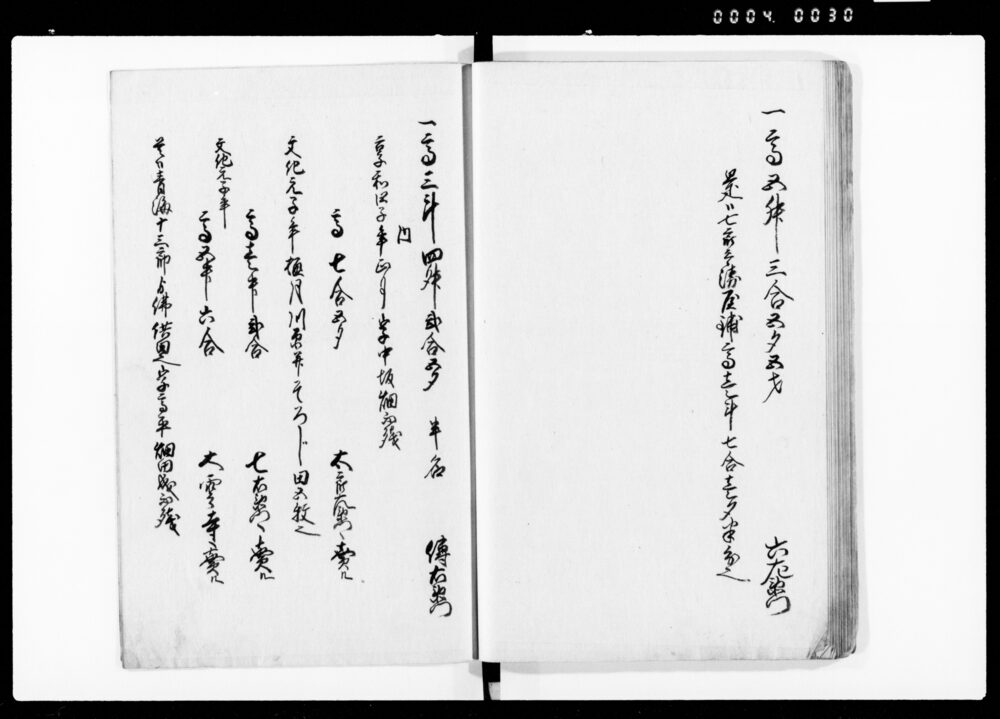 0004 0030
一高五升三合五夕五才
六左衛門
是ハ七郎兵衛屋鋪高壱斗七合壱夕半分也
一高三斗四升弐合五夕 半名
傳右衛門
内
享和四子年正月字中坂畑不残
高七合五夕
太郎右衛門へ賣ル
文化元子年極月川原并そろし田五枚也
高壱升弐合
七右衛門へ賣ル
文化元子年
高五升六合
大雲寺へ賣ル
是ハ青海十三郎佛供田也字高平畑田成不残